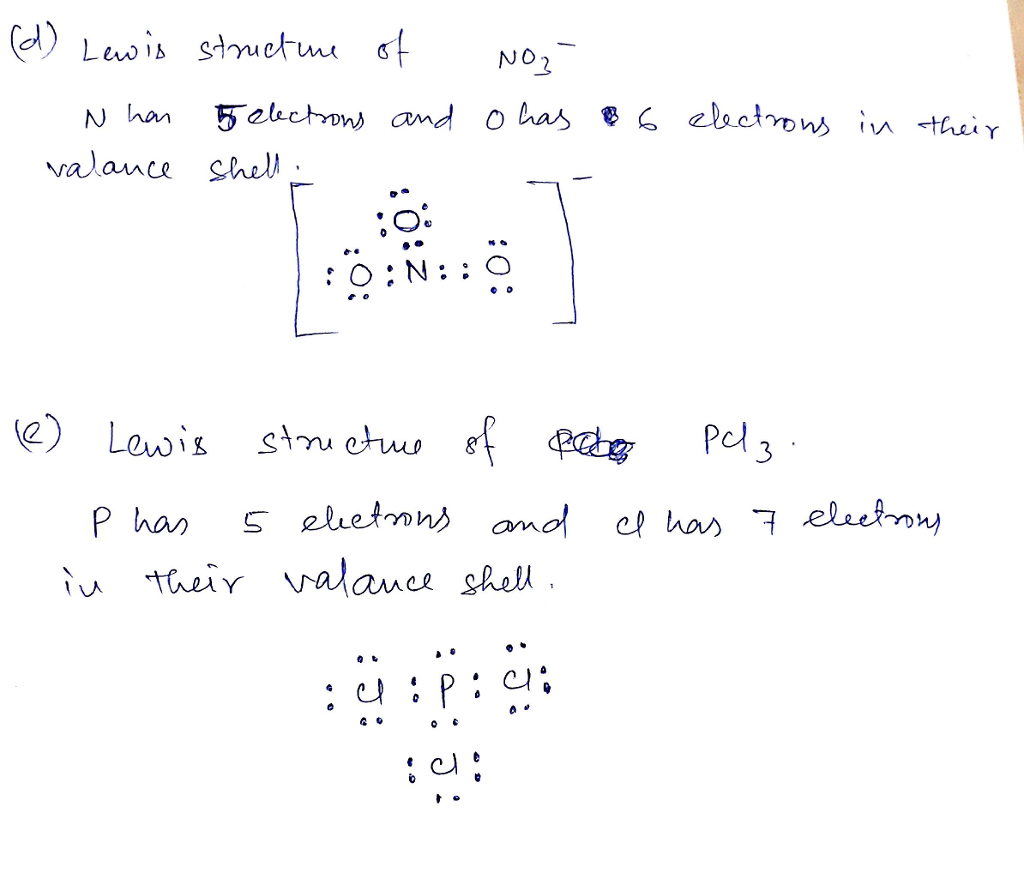 (d) Lewis structure of NO3⁻
N has 5 electrons and O has 6 electrons in their
valance shell.
[ ]⁻
:O:
:O:N::O
(e) Lewis structure of PCl3.
P has 5 electrons and Cl has 7 electrons
in their valance shell.
:Cl:P:Cl:
:Cl: